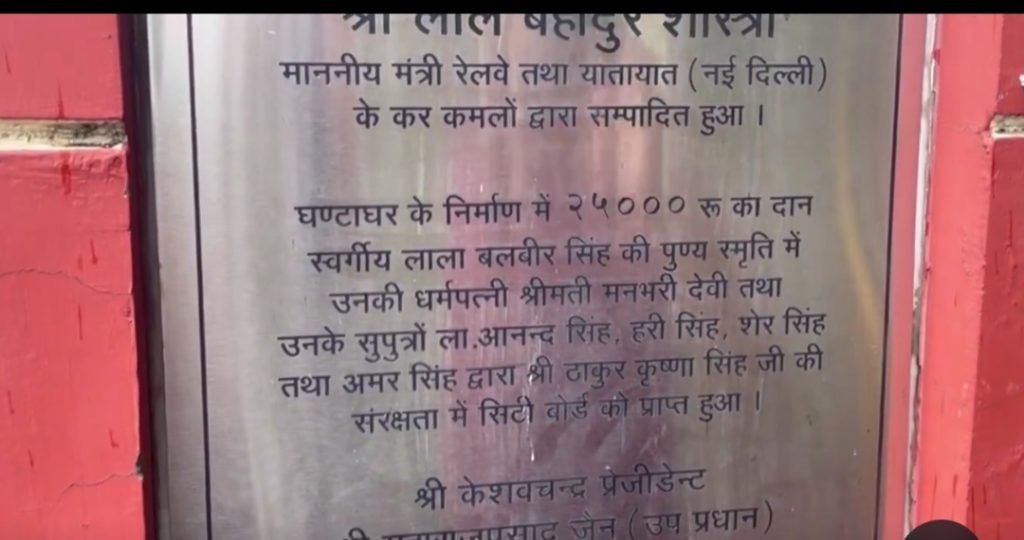 श्री लाल बहादुर शास्त्री
माननीय मंत्री रेलवे तथा यातायात (नई दिल्ली)
के कर कमलों द्वारा सम्पादित हुआ ।
घण्टाघर के निर्माण में २५००० रू का दान
स्वर्गीय लाला बलबीर सिंह की पुण्य स्मृति में
उनकी धर्मपत्नी श्रीमती मनभरी देवी तथा
उनके सुपुत्रों ला.आनन्द सिंह, हरी सिंह, शेर सिंह
तथा अमर सिंह द्वारा श्री ठाकुर कृष्णा सिंह जी की
संरक्षता में सिटी बोर्ड को प्राप्त हुआ ।
श्री केशवचन्द्र प्रेजीडेन्ट
जैन (उप प्रधान)